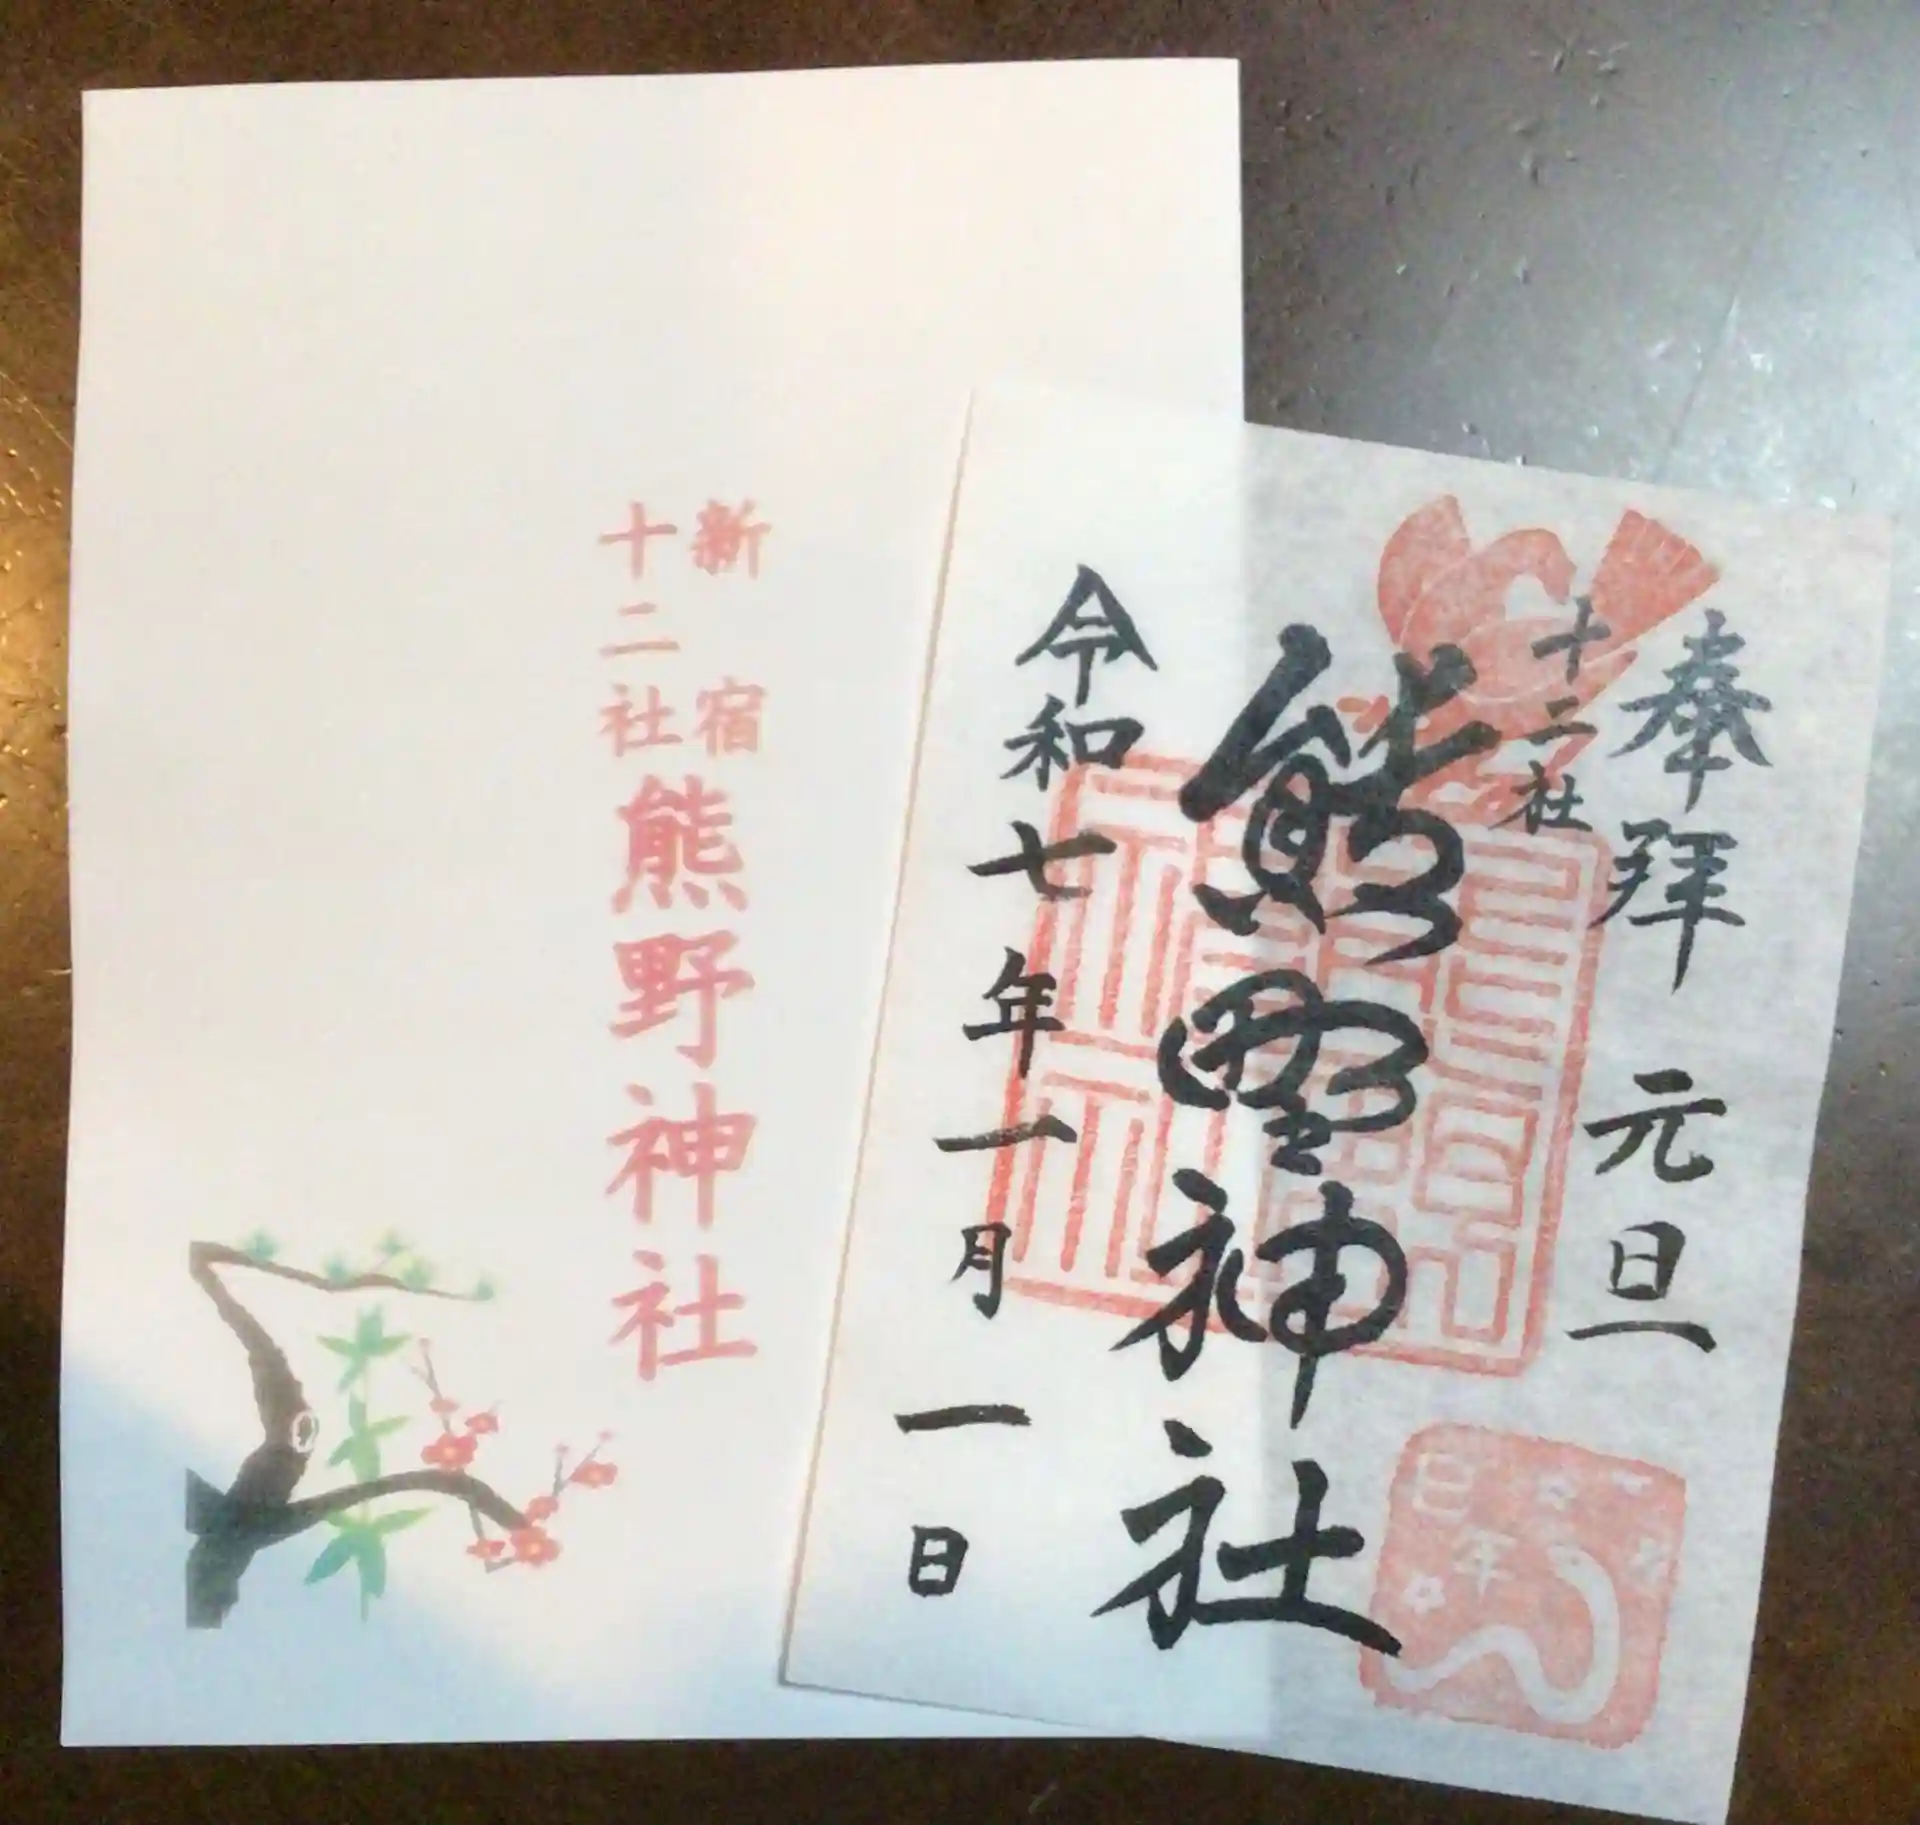 新宿
十二社
熊野神社
奉拝 元旦
十二社
熊野神社
令和七年一月一日
巳年